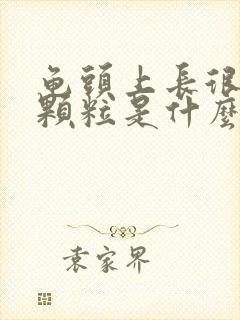 龟頭上長很
顆粒是什麼
袁家界